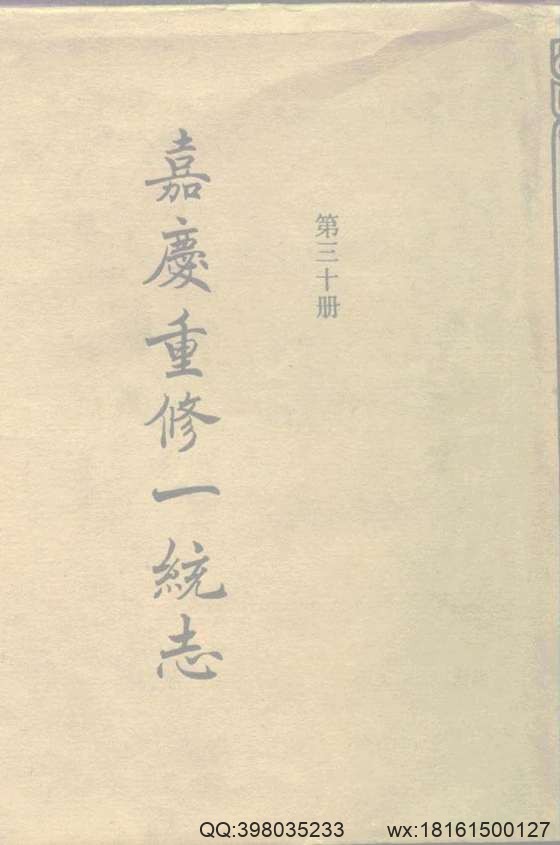 第三十册
嘉慶重修一統志
QQ:398035233 wx:18161500127